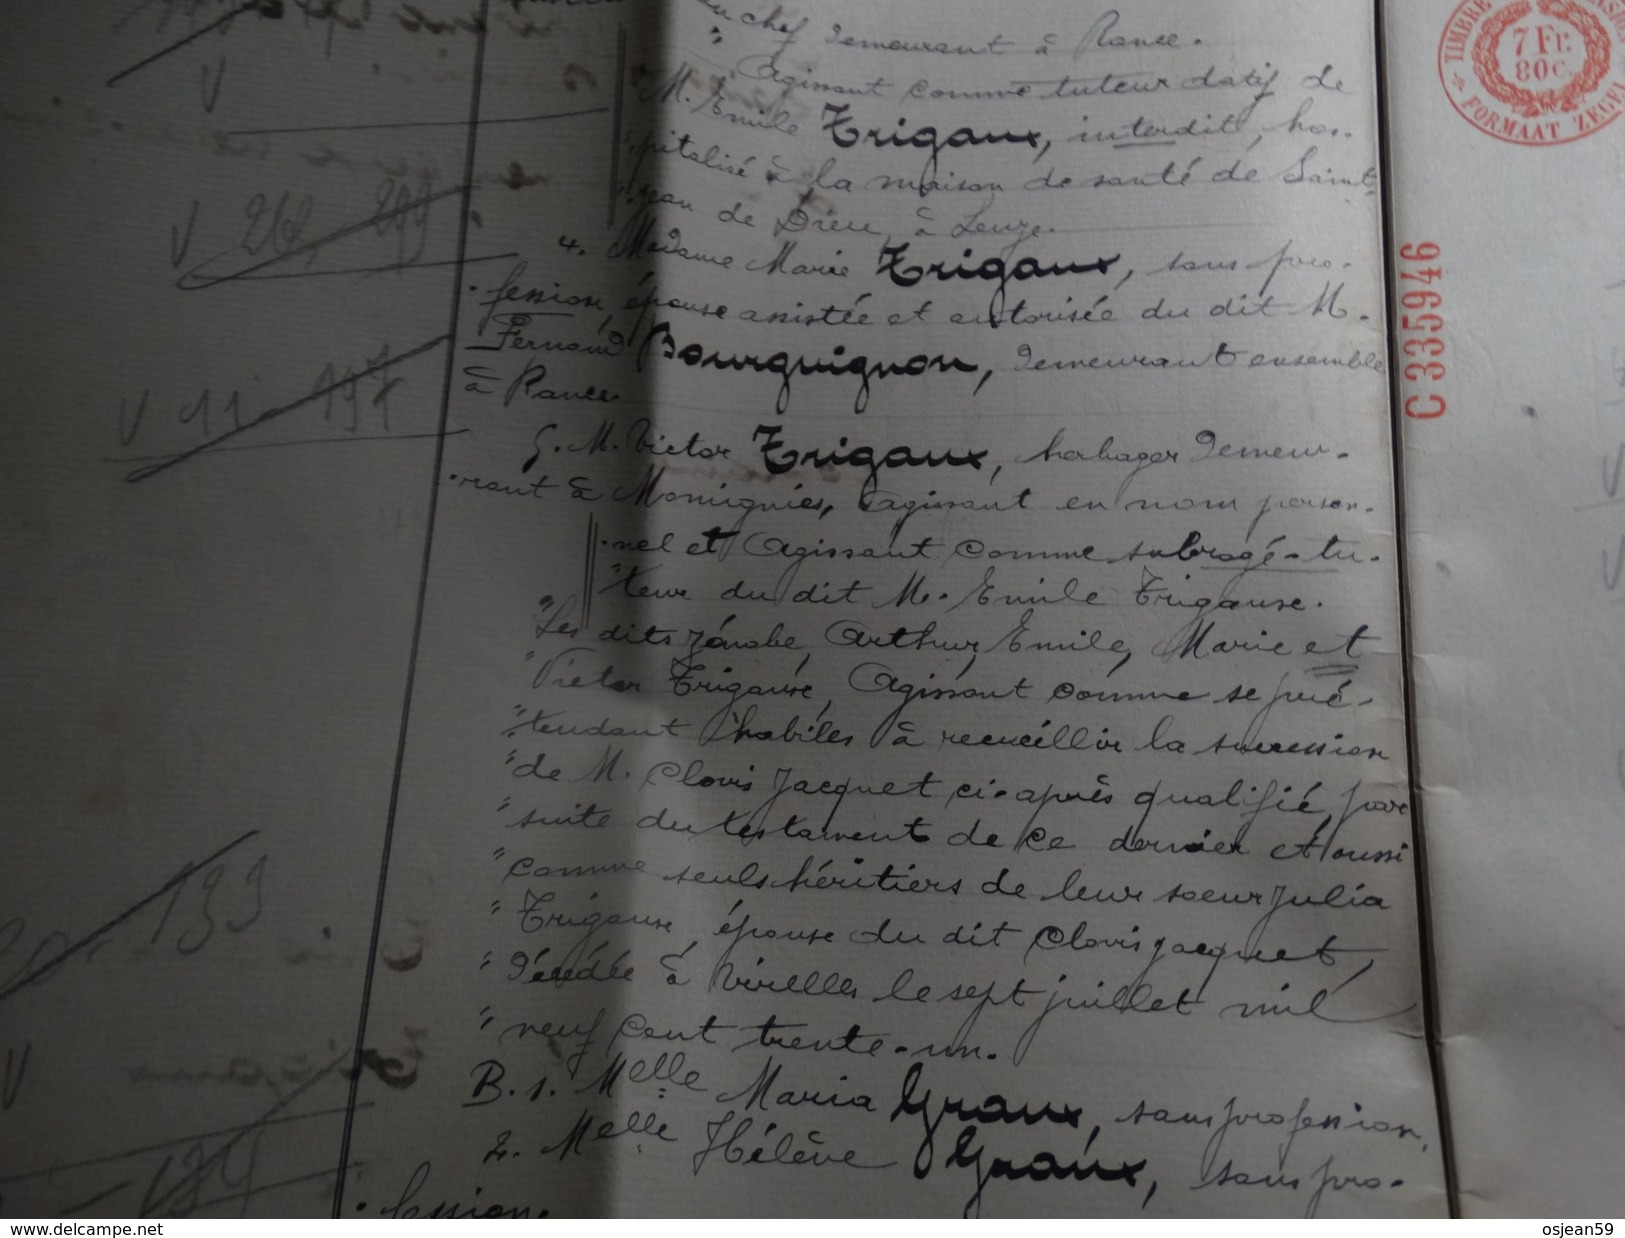 en chef demeurant à Rance.
" Agissant comme tuteur datif de
" M. Emile Trigaux, interdit, hos-
" pitalisé à la maison de santé de Saint
" Jean de Dieu, à Leuze.
4. Madame Marie Trigaux, sans pro-
-fession, épouse assistée et autorisée du dit M.
Fernand Bourguignon, demeurant ensemble
à Rance.
5. M. Victor Trigaux, herbager demeu-
-rant à Momignies, agissant en nom person-
-nel et Agissant comme subrogé-tu-
" teur du dit M. Emile Trigaux.
" Les dits Zénobe, Arthur, Emile, Marie et
" Victor Trigaux, Agissant comme se pré-
" tendant habiles à recueillir la succession
" de M. Clovis Jacquet ci-après qualifié, par
" suite du testament de ce dernier et aussi
" comme seuls héritiers de leur soeur Julia
" Trigaux, épouse du dit Clovis Jacquet,
" décédée à Virelles le sept juillet mil
" neuf cent trente-un.
B. 1. Melle Maria Graux, sans profession,
2. Melle Hélène Graux, sans pro-
-fession.
V
V 262, 299
V 11 - 197
199
V
194
TIMBRE
7 Fr.
80 c.
FORMAAT ZEGEL
C 335946
www.delcampe.net
osjean59